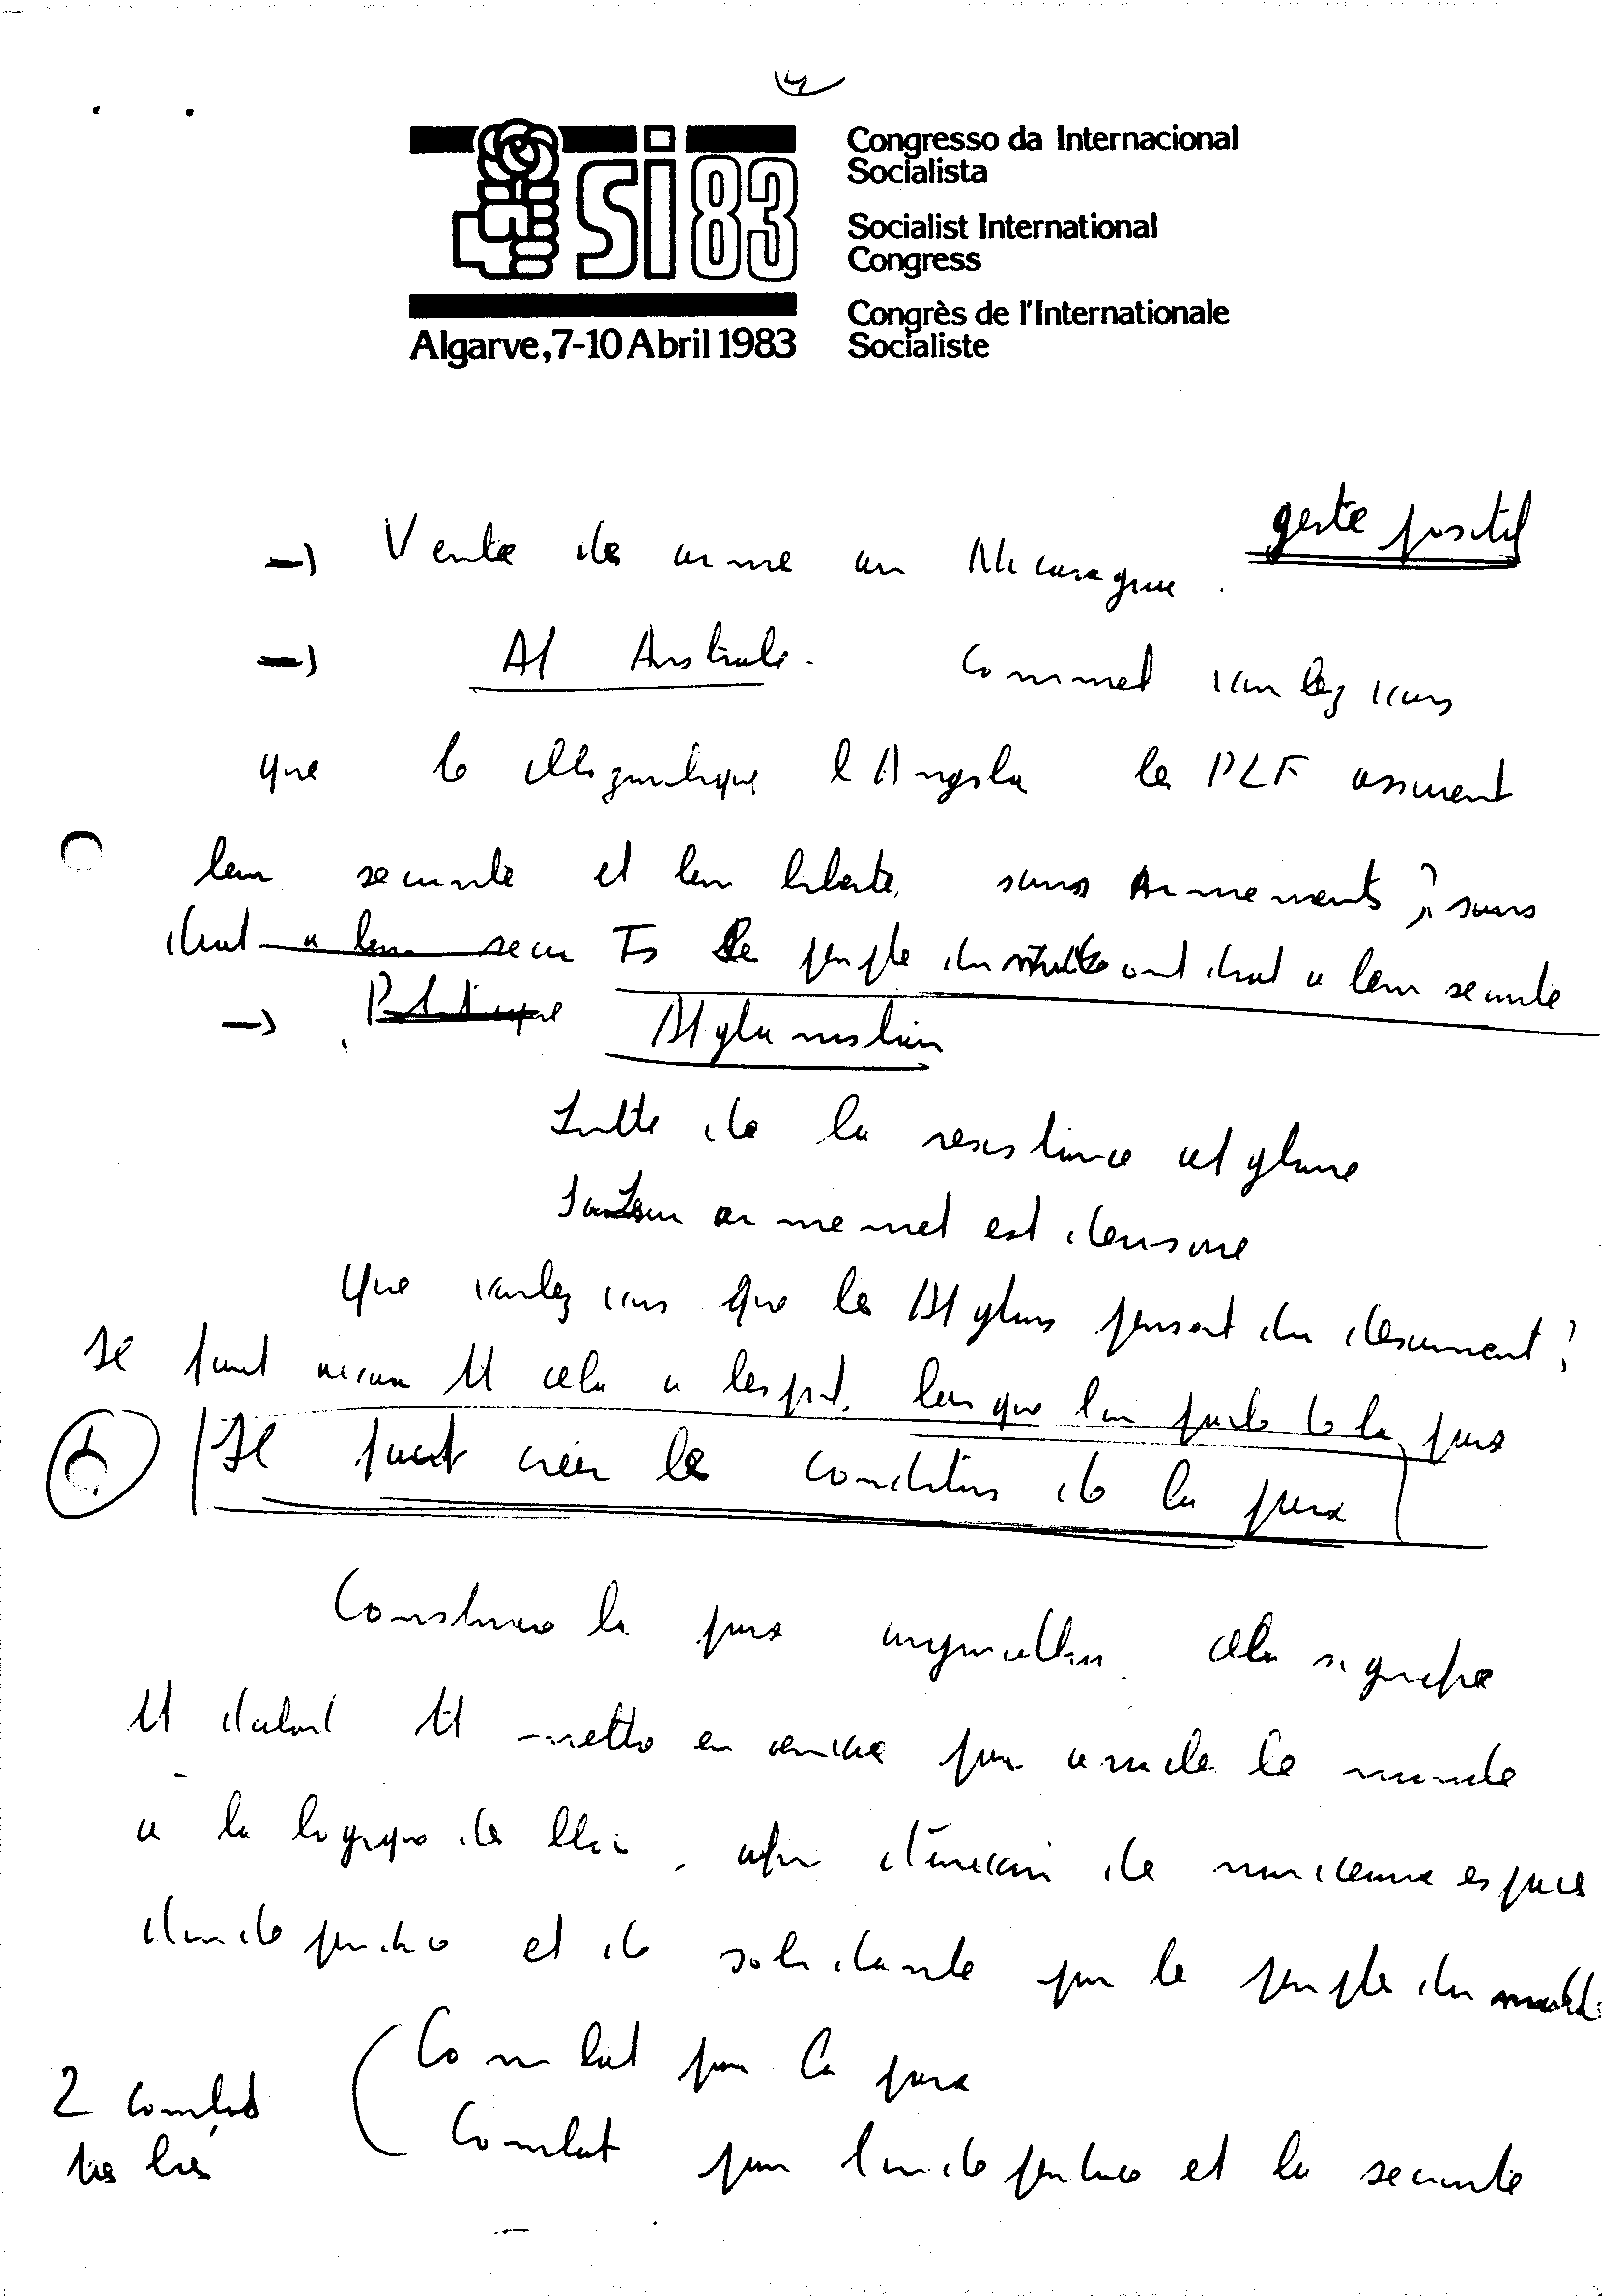 4
SI 83
Algarve, 7-10 Abril 1983
Congresso da Internacional
Socialista
Socialist International
Congress
Congrès de l'Internationale
Socialiste
geste positif
→ Vente des arme au Nicaragua.
→ Af Australe. Comment voulez vous
que le Mozambique l'Angola les PLF assurent
leur securite et leur liberte, sans armements ? sans
droit a leur secu Ts Le peuple du monde ont droit a leur securite
→ Politique Afghanistan
Lutte de la resistance afghane
armemet est derisoire
Que voulez vous que les Afghans pensent du desarmement ?
Il faut avoir tt cela a lesprit, lorsque l'on parle de la paix
6 Il faut creer les conditions de la paix
Construire la paix aujourdhui cela signifie
tt dabord tt mettre en oeuvre pour le monde
a la logique des Blocs, afin de nouveaux espaces
dindependance et de solidarite pour les peuple du monde
2 combats
tres liés
Combat pour la paix
Combat pour lindependance et la securite